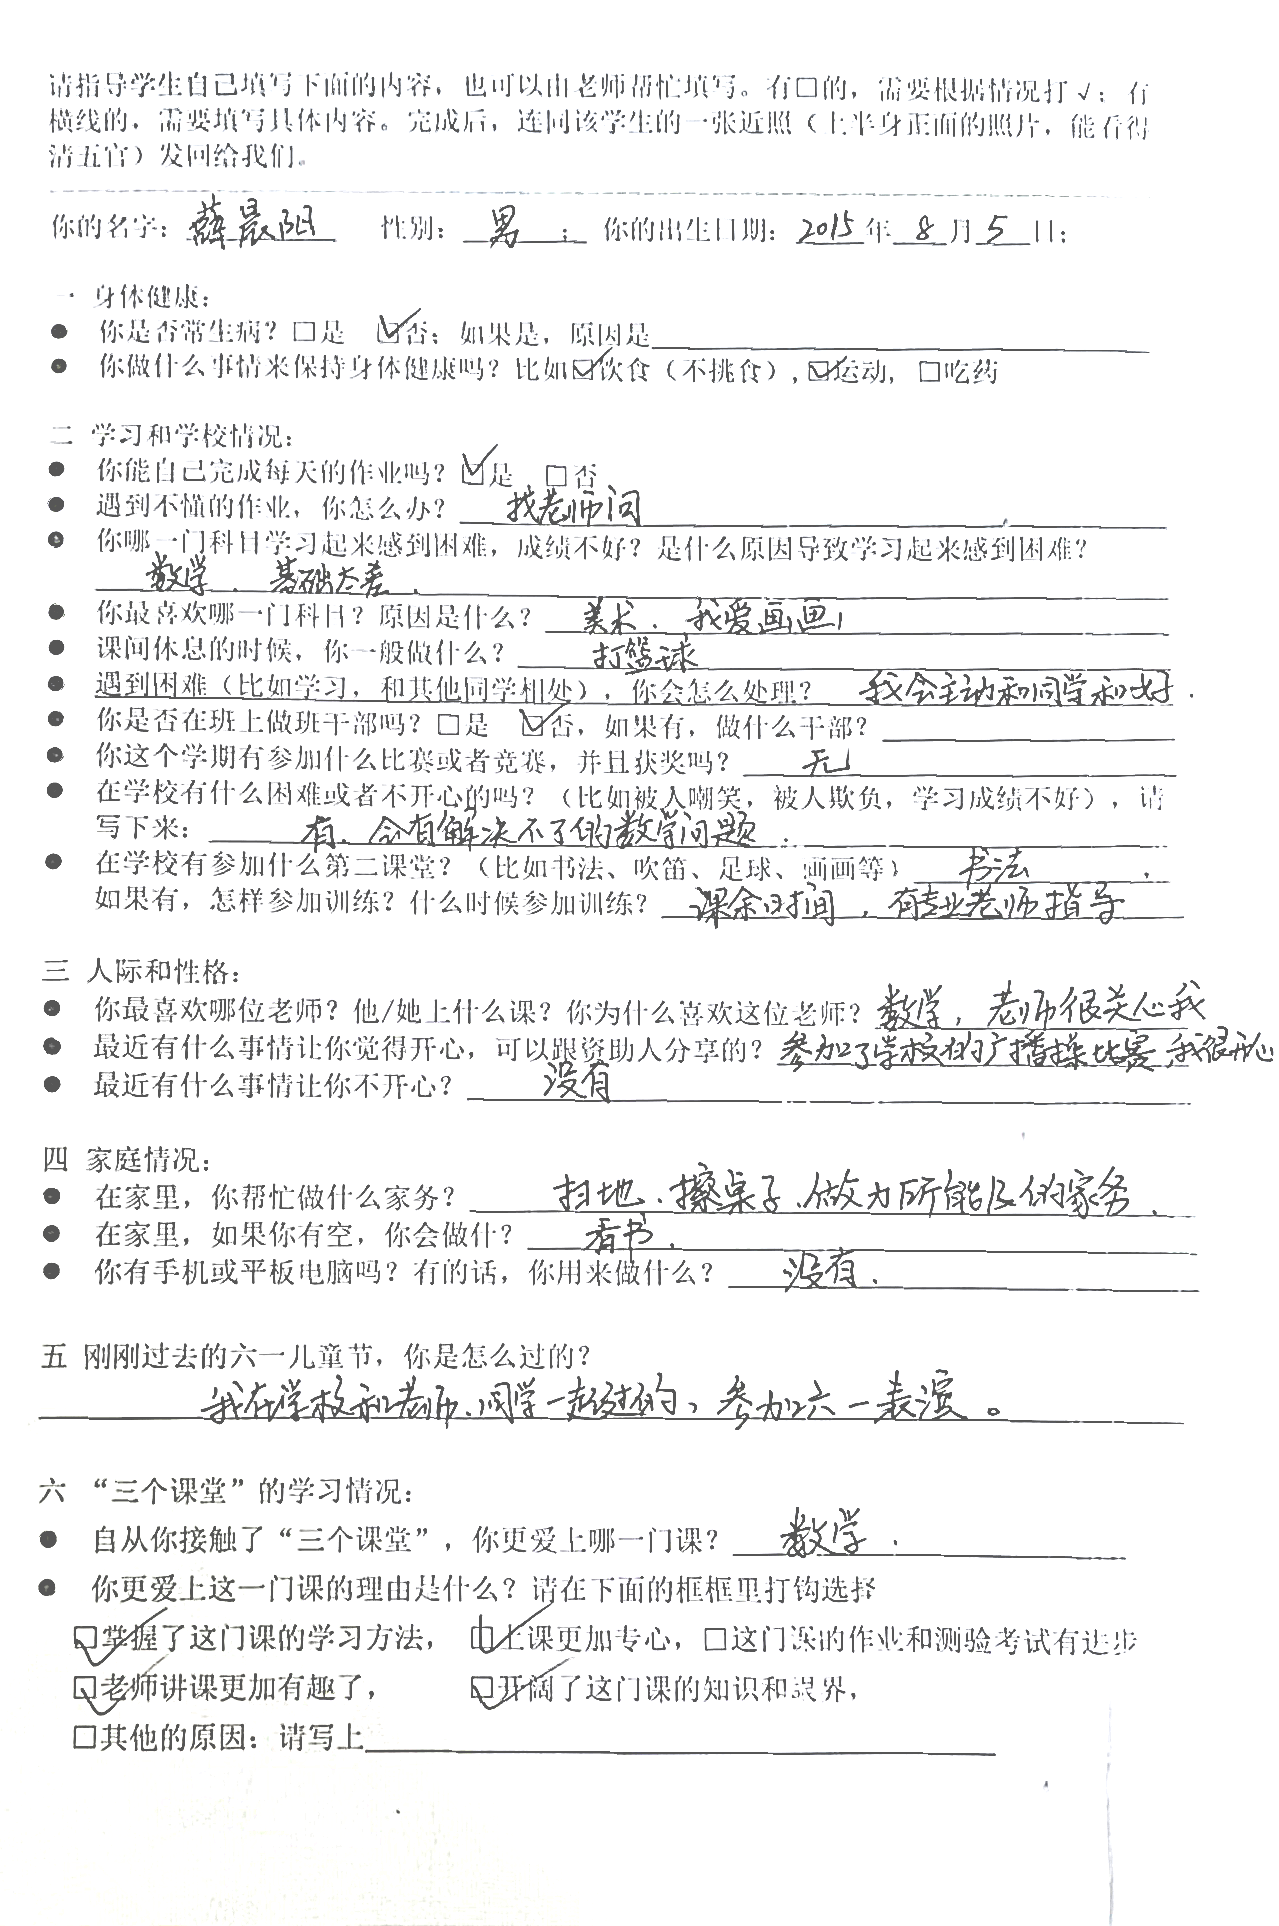 请指导学生自己填写下面的内容，也可以由老师帮忙填写。有□的，需要根据情况打√；有
横线的，需要填写具体内容。完成后，连同该学生的一张近照（上半身正面的照片，能看得
清五官）发回给我们。
你的名字：薛晨阳 性别：男； 你的出生日期：2015年8月5日；
一 身体健康：
● 你是否常生病？□是 ☑否；如果是，原因是
● 你做什么事情来保持身体健康吗？比如☑饮食（不挑食），☑运动，□吃药
二 学习和学校情况：
● 你能自己完成每天的作业吗？☑是 □否
● 遇到不懂的作业，你怎么办？找老师问
● 你哪一门科目学习起来感到困难，成绩不好？是什么原因导致学习起来感到困难？
数学、基础太差.
● 你最喜欢哪一门科目？原因是什么？美术. 我爱画画，
● 课间休息的时候，你一般做什么？打篮球
● 遇到困难（比如学习，和其他同学相处），你会怎么处理？我会主动和同学和好.
● 你是否在班上做班干部吗？□是 ☑否，如果有，做什么干部？
● 你这个学期有参加什么比赛或者竞赛，并且获奖吗？无
● 在学校有什么困难或者不开心的吗？（比如被人嘲笑，被人欺负，学习成绩不好），请
写下来：有、会有解决不了的数学问题；
● 在学校有参加什么第二课堂？（比如书法、吹笛、足球、画画等）书法，
如果有，怎样参加训练？什么时候参加训练？课余时间，有专业老师指导
三 人际和性格：
● 你最喜欢哪位老师？他/她上什么课？你为什么喜欢这位老师？数学，老师很关心我
● 最近有什么事情让你觉得开心，可以跟资助人分享的？参加了学校的广播操比赛 我很开心
● 最近有什么事情让你不开心？没有
四 家庭情况：
● 在家里，你帮忙做什么家务？扫地、擦桌子、做力所能及的家务.
● 在家里，如果你有空，你会做什？看书.
● 你有手机或平板电脑吗？有的话，你用来做什么？没有.
五 刚刚过去的六一儿童节，你是怎么过的？
我在学校和老师、同学一起过的，参加六一表演。
六 “三个课堂”的学习情况：
● 自从你接触了“三个课堂”，你更爱上哪一门课？数学.
● 你更爱上这一门课的理由是什么？请在下面的框框里打钩选择
☑掌握了这门课的学习方法， ☑上课更加专心，□这门课的作业和测验考试有进步
☑老师讲课更加有趣了， ☑开阔了这门课的知识和眼界，
□其他的原因：请写上